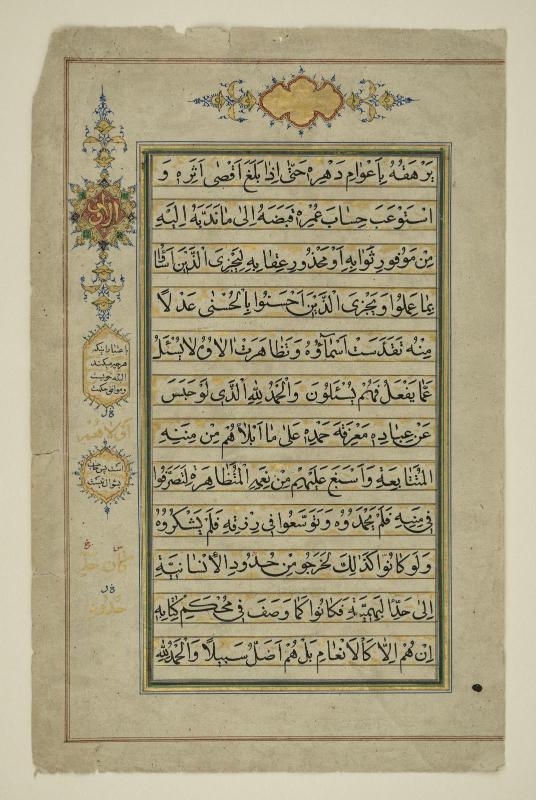 يَرْهَقُهُ بِاَعْوامِ دَهْرِهِ حَتّى اِذا بَلَغَ اَقْصى اَثَرِهِ وَ
اسْتَوْعَبَ حِسابَ عُمُرِهِ قَبَضَهُ اِلى ما نَدَبَهُ اِلَيْهِ
مِنْ مَوْفُورِ ثَوابِهِ اَوْ مَحْذُورِ عِقابِهِ لِيَجْزِيَ الَّذينَ اَساؤُا
بِما عَمِلُوا وَيَجْزِيَ الَّذينَ اَحْسَنُوا بِالْحُسْنى عَدْلاً
مِنْهُ تَقَدَّسَتْ اَسْماؤُهُ وَتَظاهَرَتْ الاؤُهُ لا يُسْئَلُ
عَمّا يَفْعَلُ وَهُمْ يُسْئَلُونَ وَالْحَمْدُ لِلّهِ الَّذي لَوْ حَبَسَ
عَنْ عِبادِهِ مَعْرِفَةَ حَمْدِهِ عَلى ما اَبْلاهُمْ مِنْ مِنَنِهِ
الْمُتَتابِعَةِ وَاَسْبَغَ عَلَيْهِمْ مِنْ نِعَمِهِ الْمُتَظاهِرَةِ لَتَصَرَّفُوا
في مِنَنِهِ فَلَمْ يَحْمَدُوهُ وَتَوَسَّعُوا في رِزْقِهِ فَلَمْ يَشْكُرُوهُ
وَلَوْ كانُوا كَذلِكَ لَخَرَجُو مِنْ حُدُودِ الْاِنْسانِيَّةِ
اِلى حَدِّ الْبَهيمِيَّةِ فَكانُوا كَما وَصَفَ في مُحْكَمِ كِتابِهِ
اِنْ هُمْ اِلاّ كَالْاَنْعامِ بَلْ هُمْ اَضَلُّ سَبيلاً وَالْحَمْدُ لِلّهِ